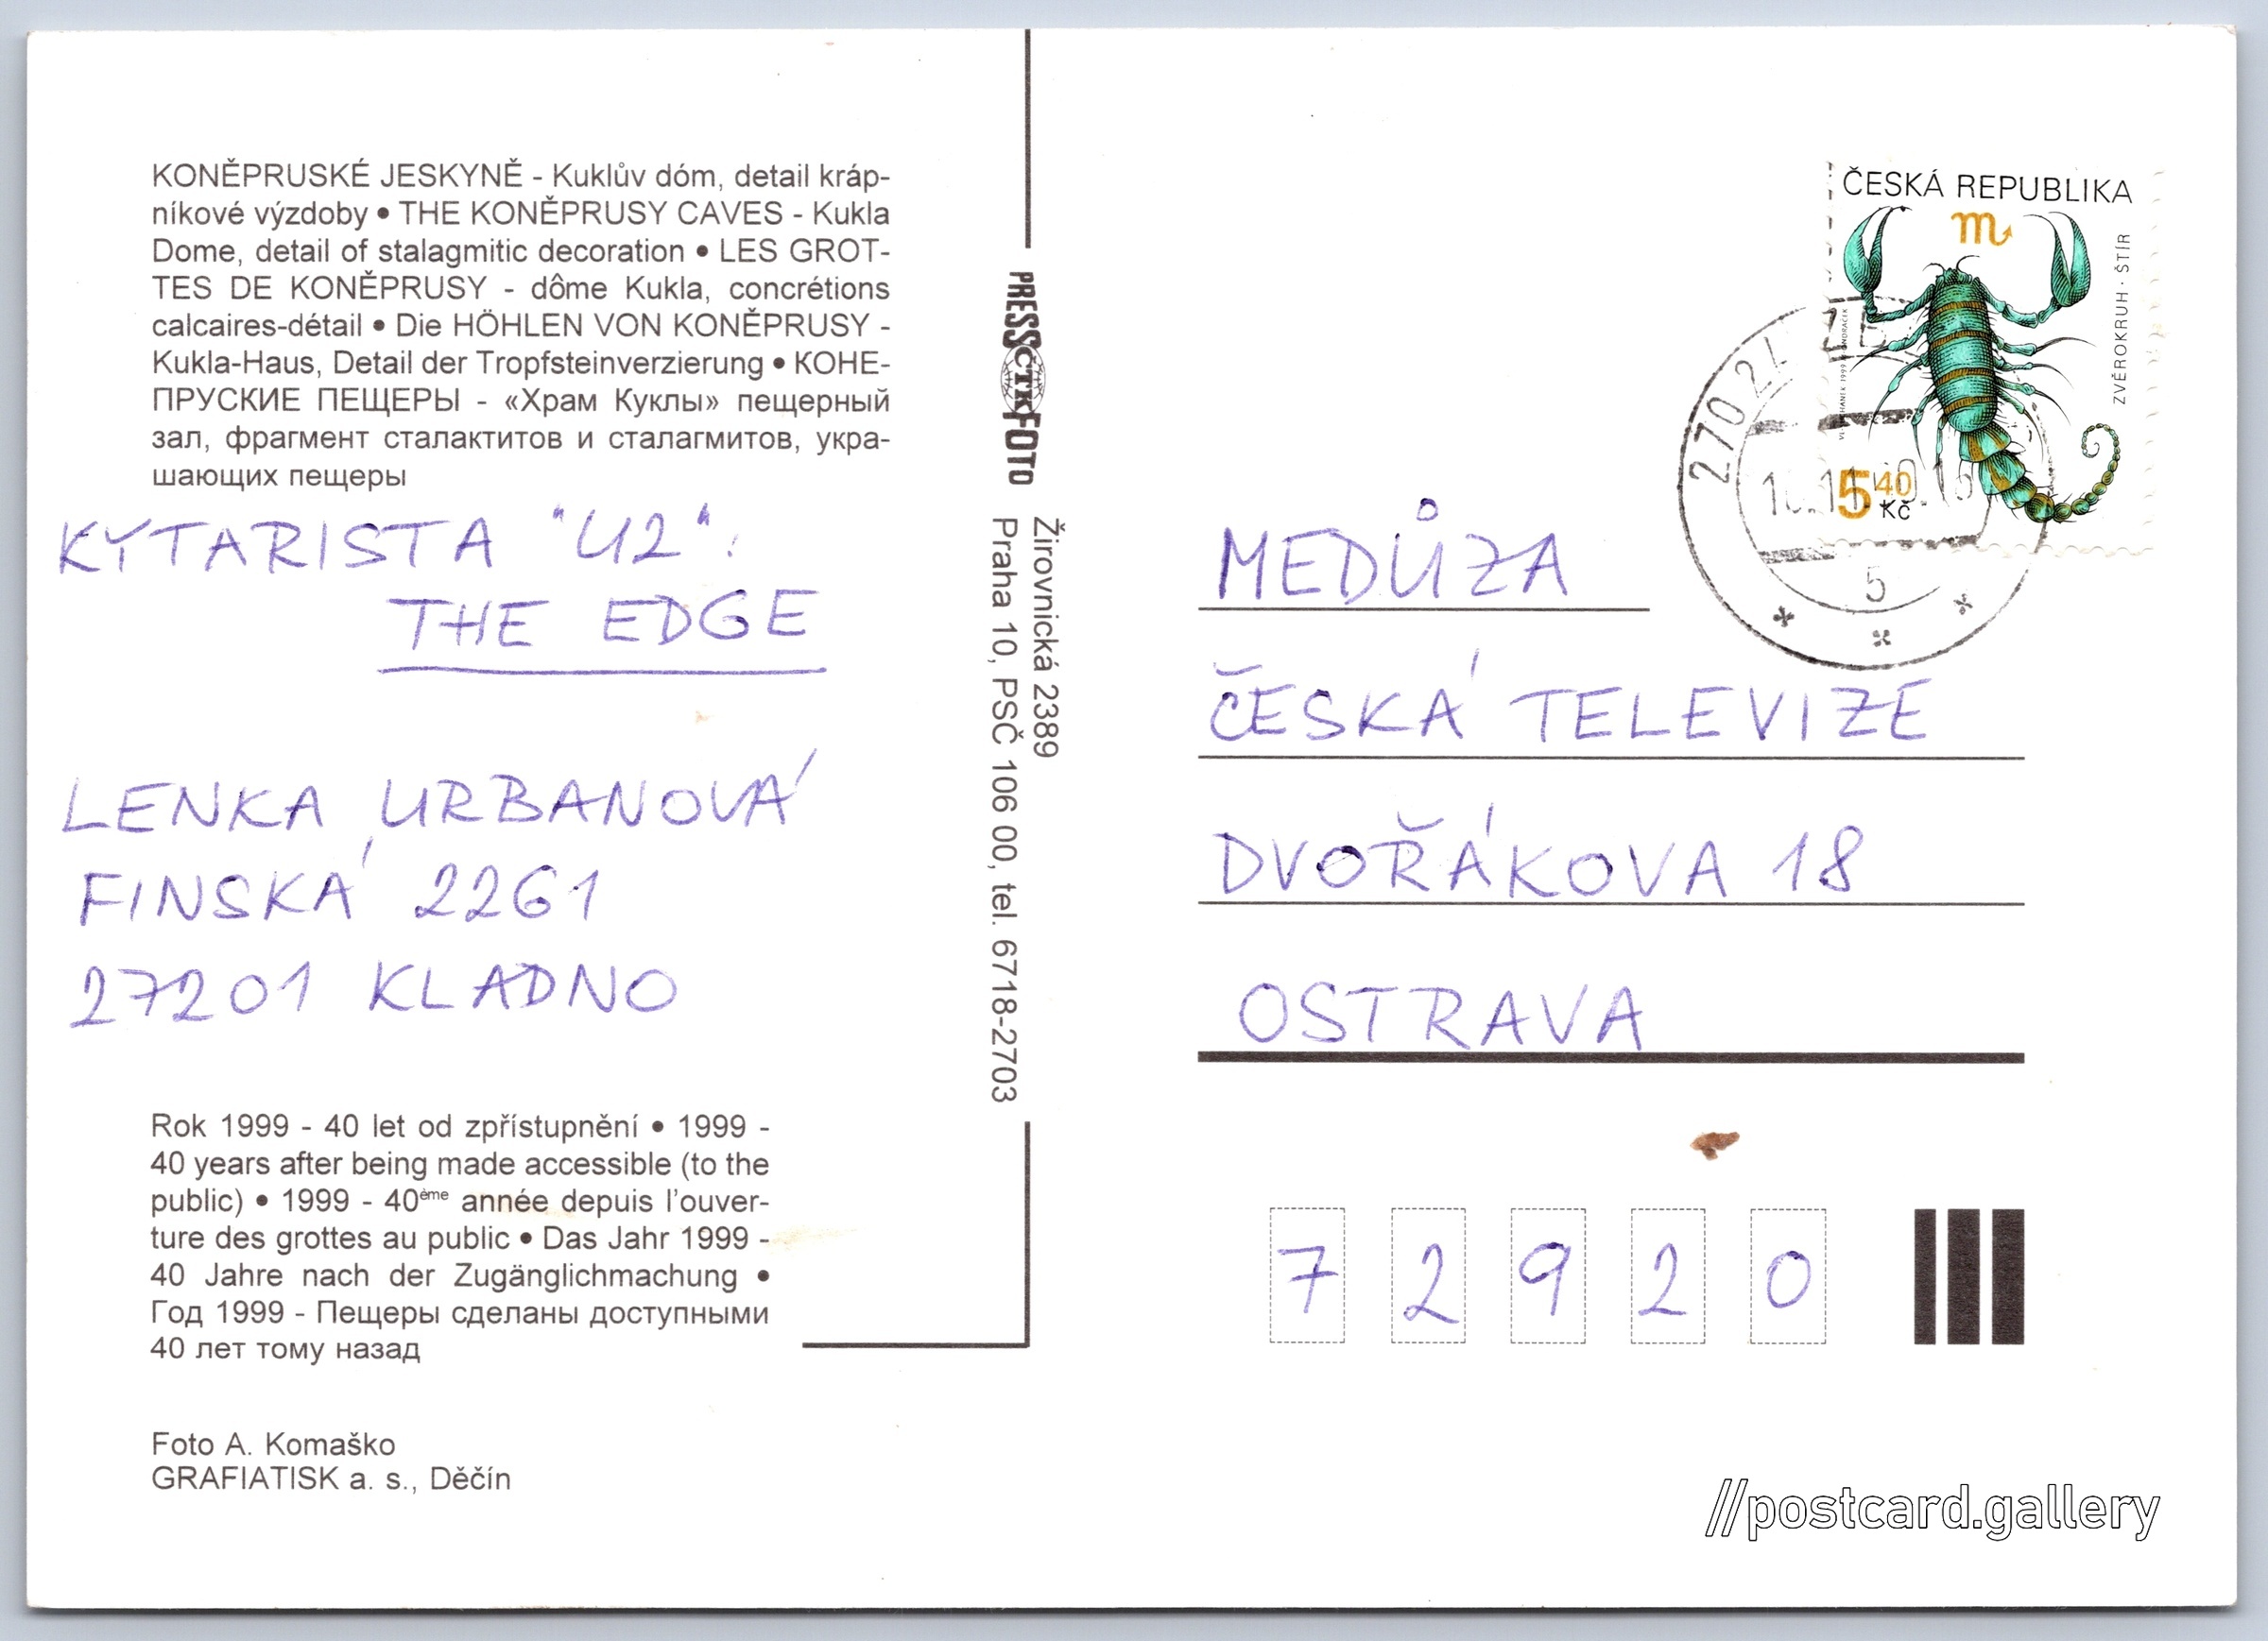 KONĚPRUSKÉ JESKYNĚ - Kuklův dóm, detail kráp-
níkové výzdoby • THE KONĚPRUSY CAVES - Kukla
Dome, detail of stalagmitic decoration • LES GROT-
TES DE KONĚPRUSY - dôme Kukla, concrétions
calcaires-détail • Die HÖHLEN VON KONĚPRUSY -
Kukla-Haus, Detail der Tropfsteinverzierung • КОНЕ-
ПРУСКИЕ ПЕЩЕРЫ - «Храм Куклы» пещерный
зал, фрагмент сталактитов и сталагмитов, укра-
шающих пещеры
KYTARISTA "U2":
THE EDGE
LENKA URBANOVÁ
FINSKÁ 2261
27201 KLADNO
Rok 1999 - 40 let od zpřístupnění • 1999 -
40 years after being made accessible (to the
public) • 1999 - 40ème année depuis l'ouver-
ture des grottes au public • Das Jahr 1999 -
40 Jahre nach der Zugänglichmachung •
Год 1999 - Пещеры сделаны доступными
40 лет тому назад
Foto A. Komaško
GRAFIATISK a. s., Děčín
PRESS ČTK FOTO
Žirovnická 2389
Praha 10, PSČ 106 00, tel. 6718-2703
ČESKÁ REPUBLIKA
ZVĚROKRUH · ŠTÍR
5 40
Kč
270 2
5
MEDŮZA
ČESKÁ TELEVIZE
DVOŘÁKOVA 18
OSTRAVA
7 2 9 2 0
//postcard.gallery